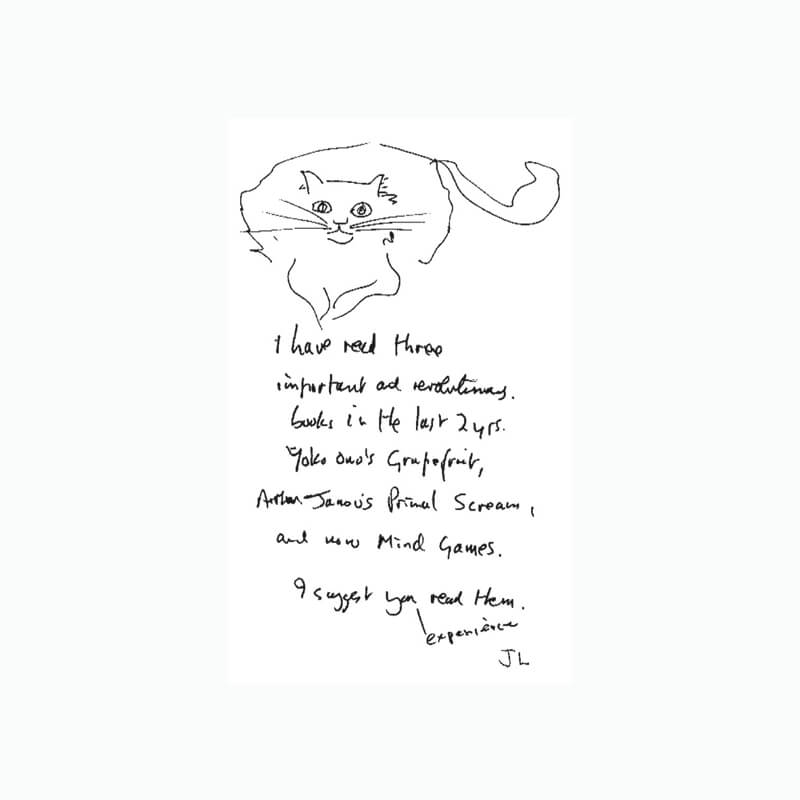 I have read three
important ad revolutionary.
books in the last 2 yrs.
Yoko Ono's Grapefruit,
Arthur Janov's Primal Scream,
and now Mind Games.
I suggest you read them.
experience
JL